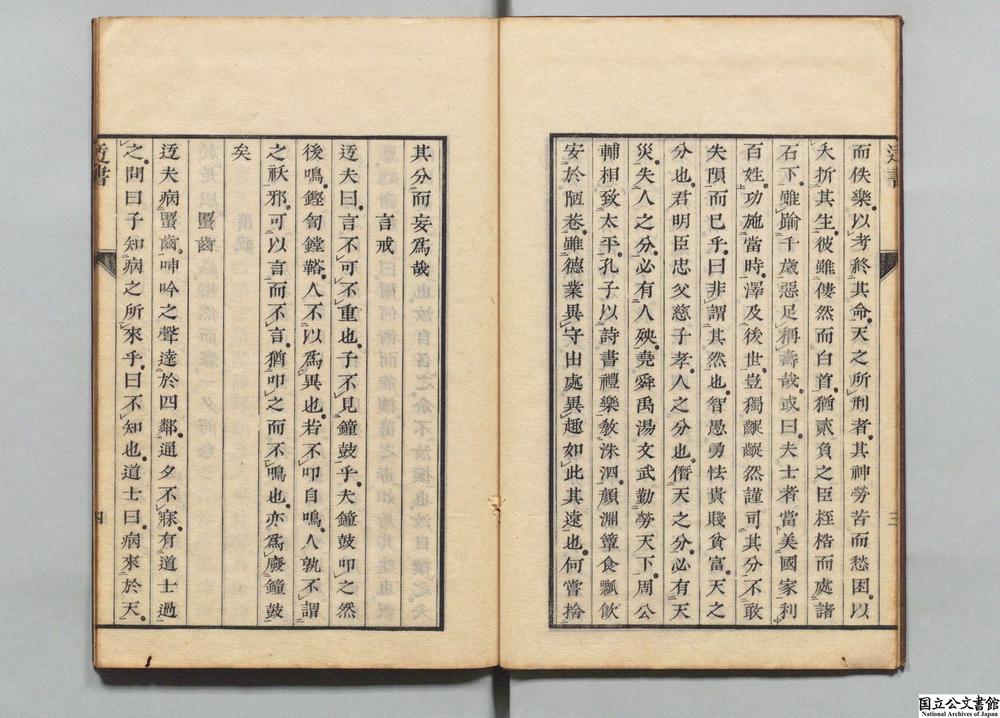 而佚樂以考終其命天之所刑者其神勞苦而愁困以
夭折其生彼雖僂然而白首猶貳負之臣桎梏而處諸
石下雖踰千歲惡足稱壽哉或曰夫士者當美國家利
百姓功施當時澤及後世豈獨齪齪然謹司其分不敢
失隕而已乎曰非謂其然也智愚勇怯貴賤貧富天之
分也君明臣忠父慈子孝人之分也僭天之分必有天
災失人之分必有人殃堯舜禹湯文武勤勞天下周公
輔相致太平孔子以詩書禮樂敎洙泗顏淵簞食瓢飲
安於陋巷雖德業異守出處異趣如此其遠也何嘗捨
三
其分而妄爲哉
言戒
迃夫曰言不可不重也子不見鐘鼓乎夫鐘鼓叩之然
後鳴鏗訇鏜鞳人不以爲異也若不叩自鳴人孰不謂
之祅邪可以言而不言猶叩之而不鳴也亦爲廢鐘鼓
矣
䘌齒
迃夫病䘌齒呻吟之聲達於四鄰通夕不寐有道士過
之問曰子知病之所來乎曰不知也道士曰病來於天
迃書
四
国立公文書館
National Archives of Japan